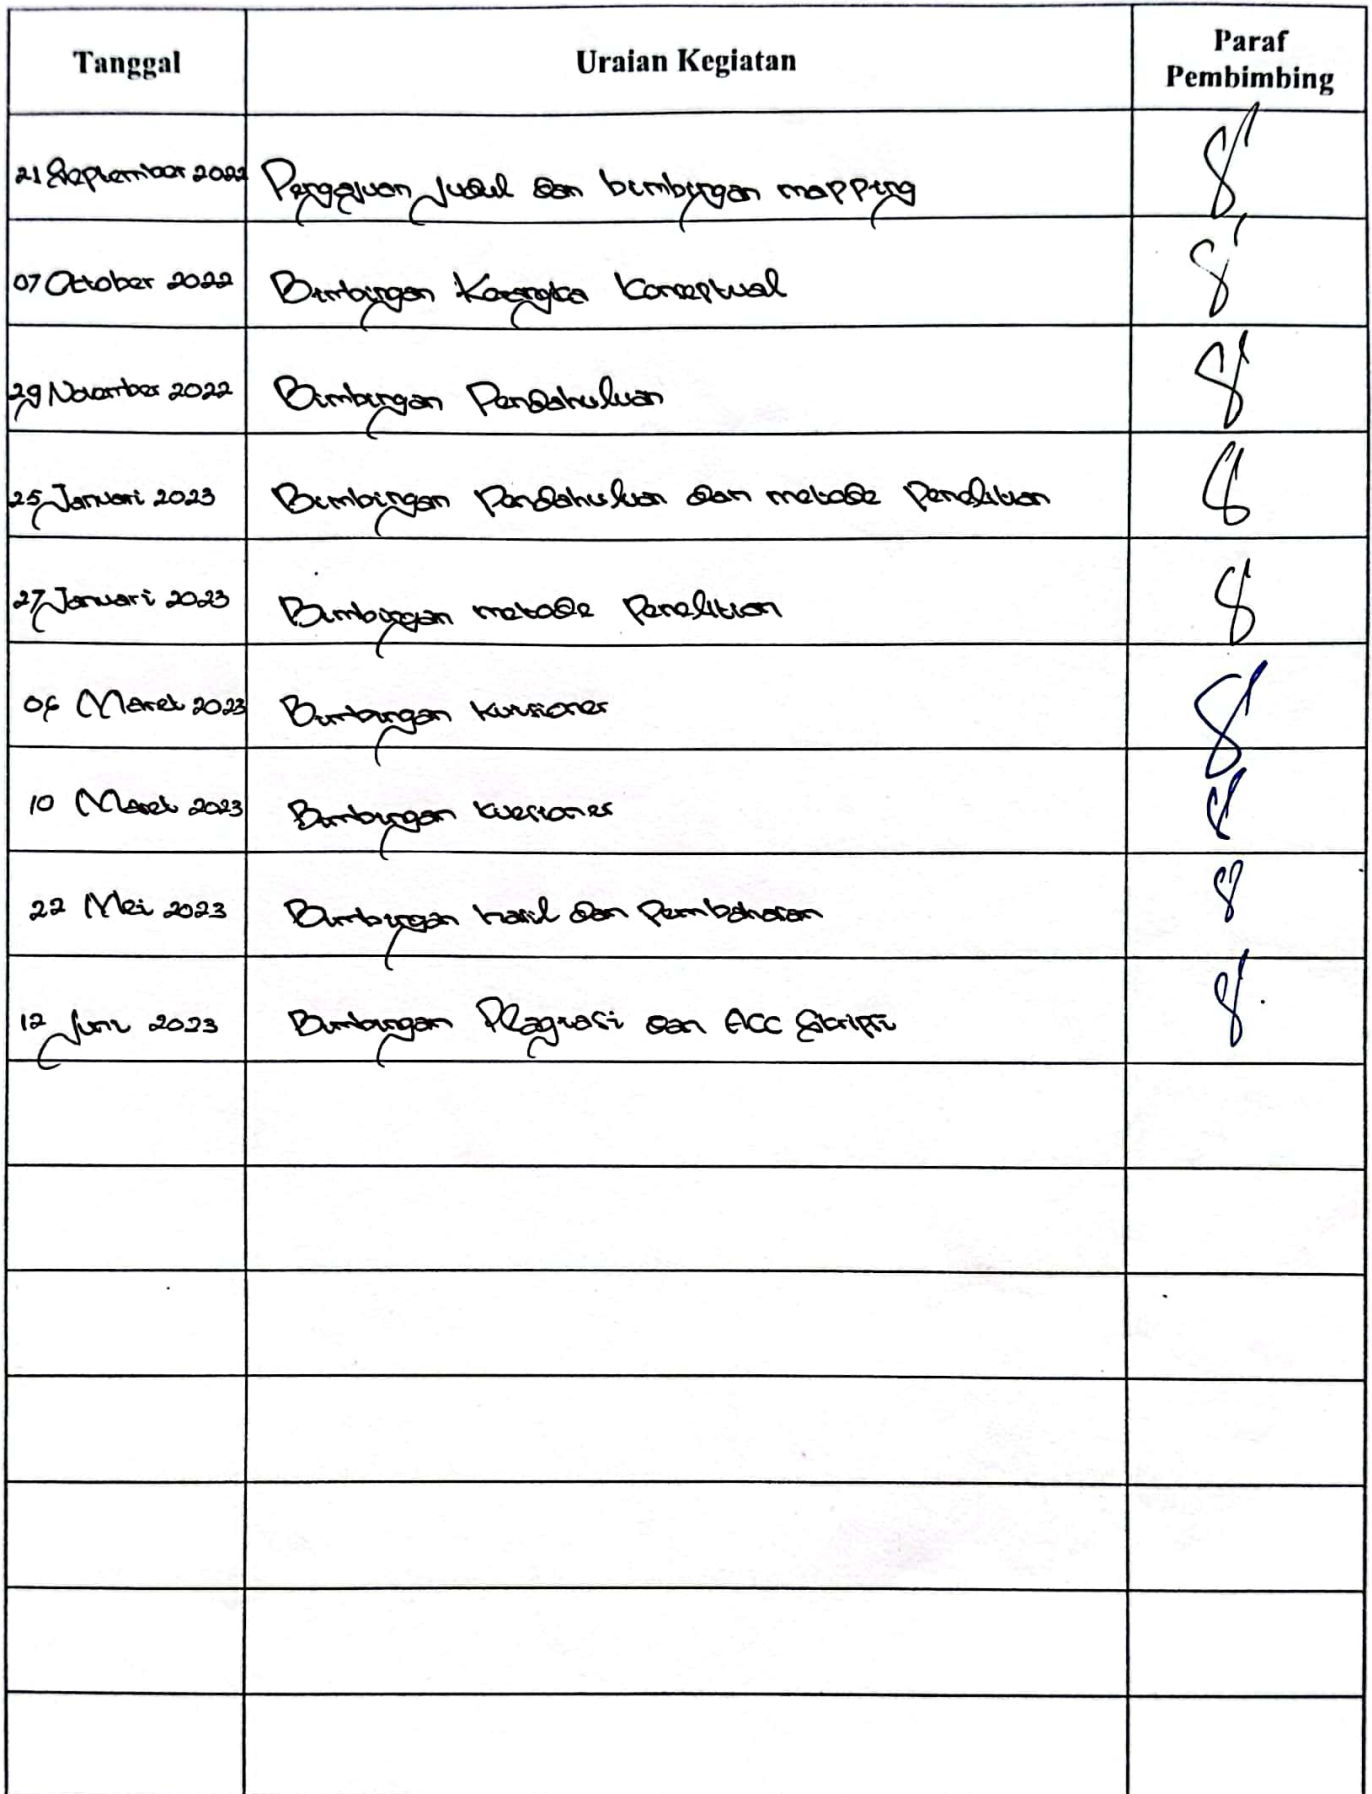 Tanggal
Uraian Kegiatan
Paraf
Pembimbing
21 September 2022 Pengajuan Judul dan bimbingan mapping
07 Oktober 2022 Bimbingan Kerangka Konseptual
29 November 2022 Bimbingan Pendahuluan
25 Januari 2023 Bimbingan Pendahuluan dan metode Penelitian
27 Januari 2023 Bimbingan metode Penelitian
06 Maret 2023 Bimbingan Kuisioner
10 Maret 2023 Bimbingan kuesioner
22 Mei 2023 Bimbingan hasil dan Pembahasan
12 Juni 2023 Bimbingan Plagiasi dan ACC Skripsi